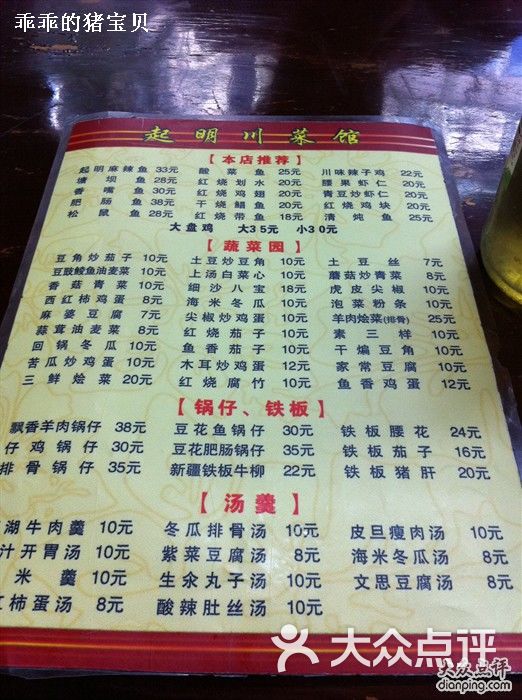 乖乖的猪宝贝
起明川菜馆
【本店推荐】
起明麻辣鱼 33元 酸菜鱼 25元 川味辣子鸡 22元
塘坝鱼 28元 红烧划水 20元 腰果虾仁 20元
香嘴鱼 30元 红烧鸡翅 20元 青豆炒虾仁 20元
肥肠鱼 35元 干烧鲳鱼 20元 红烧鸡块 20元
松鼠鱼 28元 红烧带鱼 18元 清炖鱼 25元
大盘鸡 大35元 小30元
【蔬菜园】
豆角炒茄子 10元 土豆炒豆角 10元 土豆丝 7元
豆豉鲮鱼油麦菜 10元 上汤白菜心 10元 蘑菇炒青菜 8元
香菇青菜 10元 细沙八宝 18元 虎皮尖椒 10元
西红柿鸡蛋 8元 海米冬瓜 10元 泡菜粉条 10元
麻婆豆腐 7元 尖椒炒鸡蛋 10元 羊肉烩菜(排骨) 25元
蒜茸油麦菜 8元 红烧茄子 10元 素三样 10元
回锅冬瓜 10元 鱼香茄子 10元 干煸豆角 10元
苦瓜炒鸡蛋 10元 木耳炒鸡蛋 12元 家常豆腐 10元
三鲜烩菜 20元 红烧腐竹 10元 鱼香鸡蛋 12元
【锅仔、铁板】
飘香羊肉锅仔 38元 豆花鱼锅仔 30元 铁板腰花 24元
仔鸡锅仔 30元 豆花肥肠锅仔 35元 铁板茄子 16元
排骨锅仔 35元 新疆铁板牛柳 22元 铁板猪肝 20元
【汤羹】
湖牛肉羹 10元 冬瓜排骨汤 10元 皮旦瘦肉汤 10元
汁开胃汤 10元 紫菜豆腐汤 8元 海米冬瓜汤 8元
米羹 10元 生汆丸子汤 10元 文思豆腐汤 8元
红柿蛋汤 8元 酸辣肚丝汤 10元
大众点评
大众点评
dianping.com